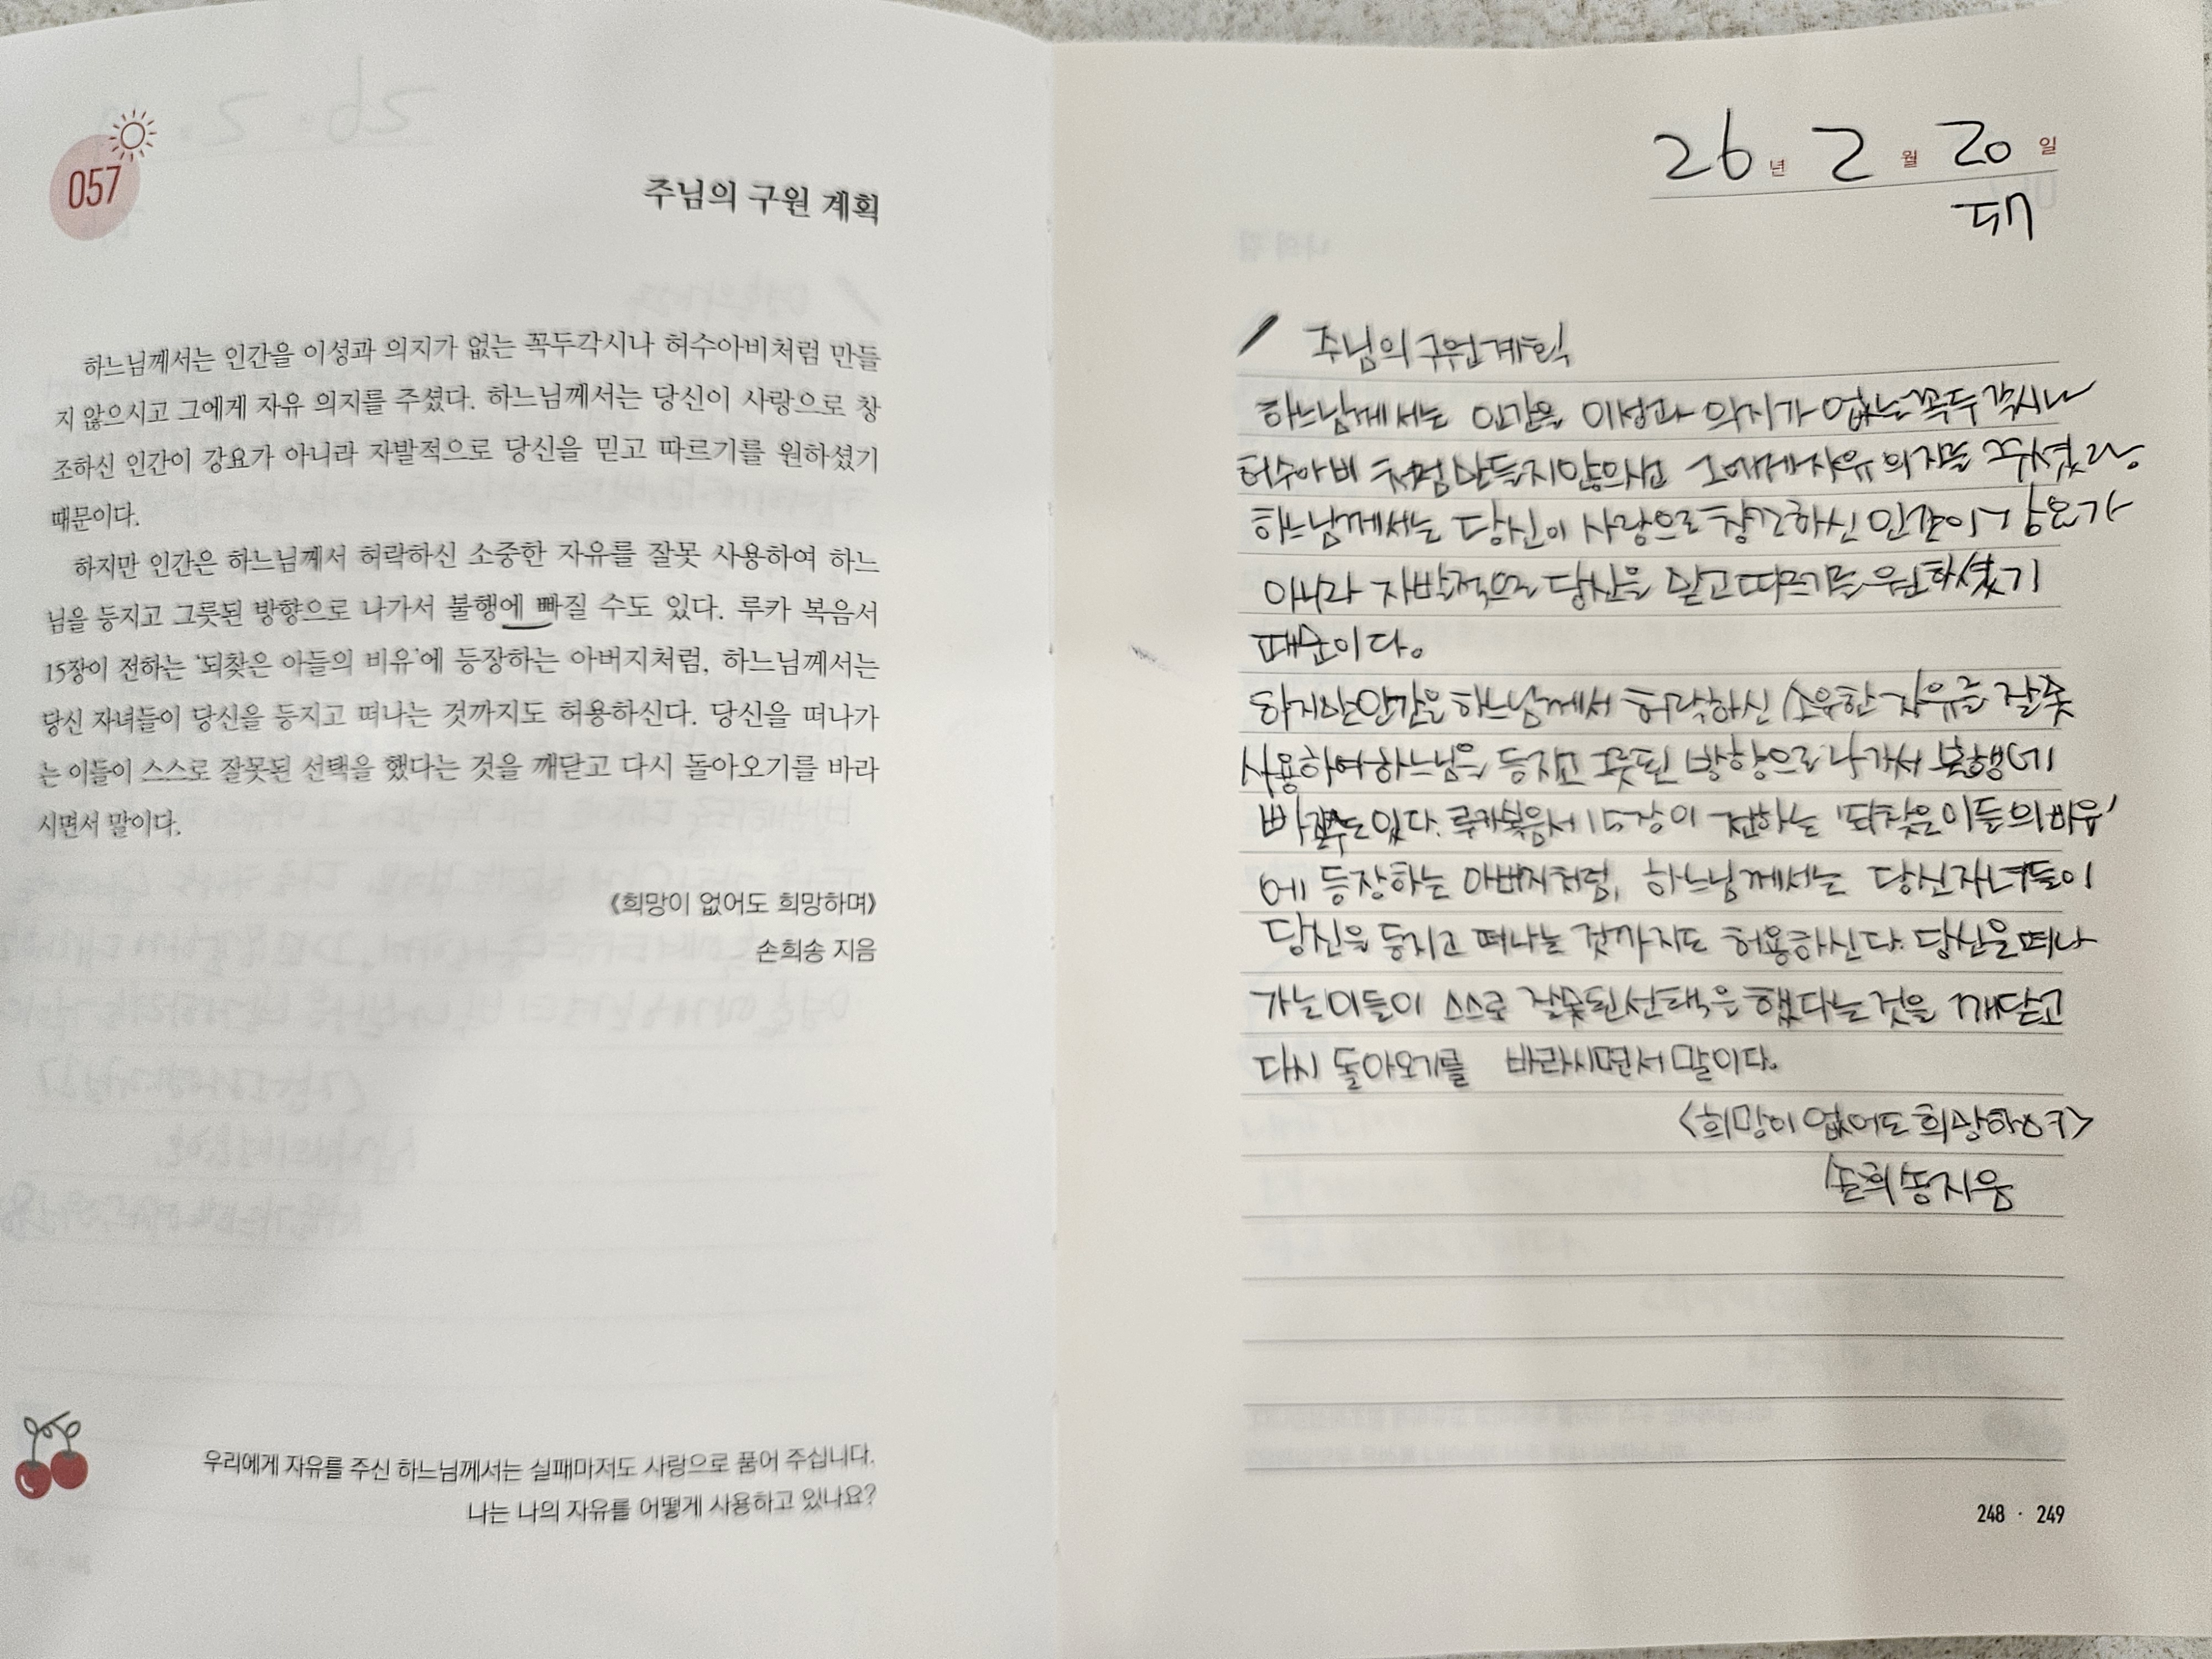 057
주님의 구원 계획
하느님께서는 인간을 이성과 의지가 없는 꼭두각시나 허수아비처럼 만들
지 않으시고 그에게 자유 의지를 주셨다. 하느님께서는 당신이 사랑으로 창
조하신 인간이 강요가 아니라 자발적으로 당신을 믿고 따르기를 원하셨기
때문이다.
하지만 인간은 하느님께서 허락하신 소중한 자유를 잘못 사용하여 하느
님을 등지고 그릇된 방향으로 나가서 불행에 빠질 수도 있다. 루카 복음서
15장이 전하는 '되찾은 아들의 비유'에 등장하는 아버지처럼, 하느님께서는
당신 자녀들이 당신을 등지고 떠나는 것까지도 허용하신다. 당신을 떠나가
는 이들이 스스로 잘못된 선택을 했다는 것을 깨닫고 다시 돌아오기를 바라
시면서 말이다.
《희망이 없어도 희망하며》
손희송 지음
우리에게 자유를 주신 하느님께서는 실패마저도 사랑으로 품어 주십니다.
나는 나의 자유를 어떻게 사용하고 있나요?
26년 2월 20일
주님의 구원계획
하느님께서는 인간을 이성과 의지가 없는 꼭두각시나
허수아비 처럼 만들지않의시고 그에게자유의지를 주셨다.
하느님께서는 당신이 사랑으로 창조하신 인간이 강요가
아니라 자발적으로 당신을 믿고 따르기를 원하셨기
때문이다.
하지만 인간은 하느님께서 허락하신 자유를 잘못
사용하여 하느님을 등지고 방향으로 나가서 불행에
빠질수도 있다. 루카복음서 15장이 전하는 '되찾은 이들의 비유'
에 등장하는 아버지처럼, 하느님께서는 당신자녀들이
당신을 등지고 떠나는 것까지도 허용하신다. 당신을 떠나
가는 이들이 스스로 잘못된 선택은 했다는 것을 깨닫고
다시 돌아오기를 바라시면서 말이다.
<희망이 없어도 희망하며>
손희송지음
248 · 249